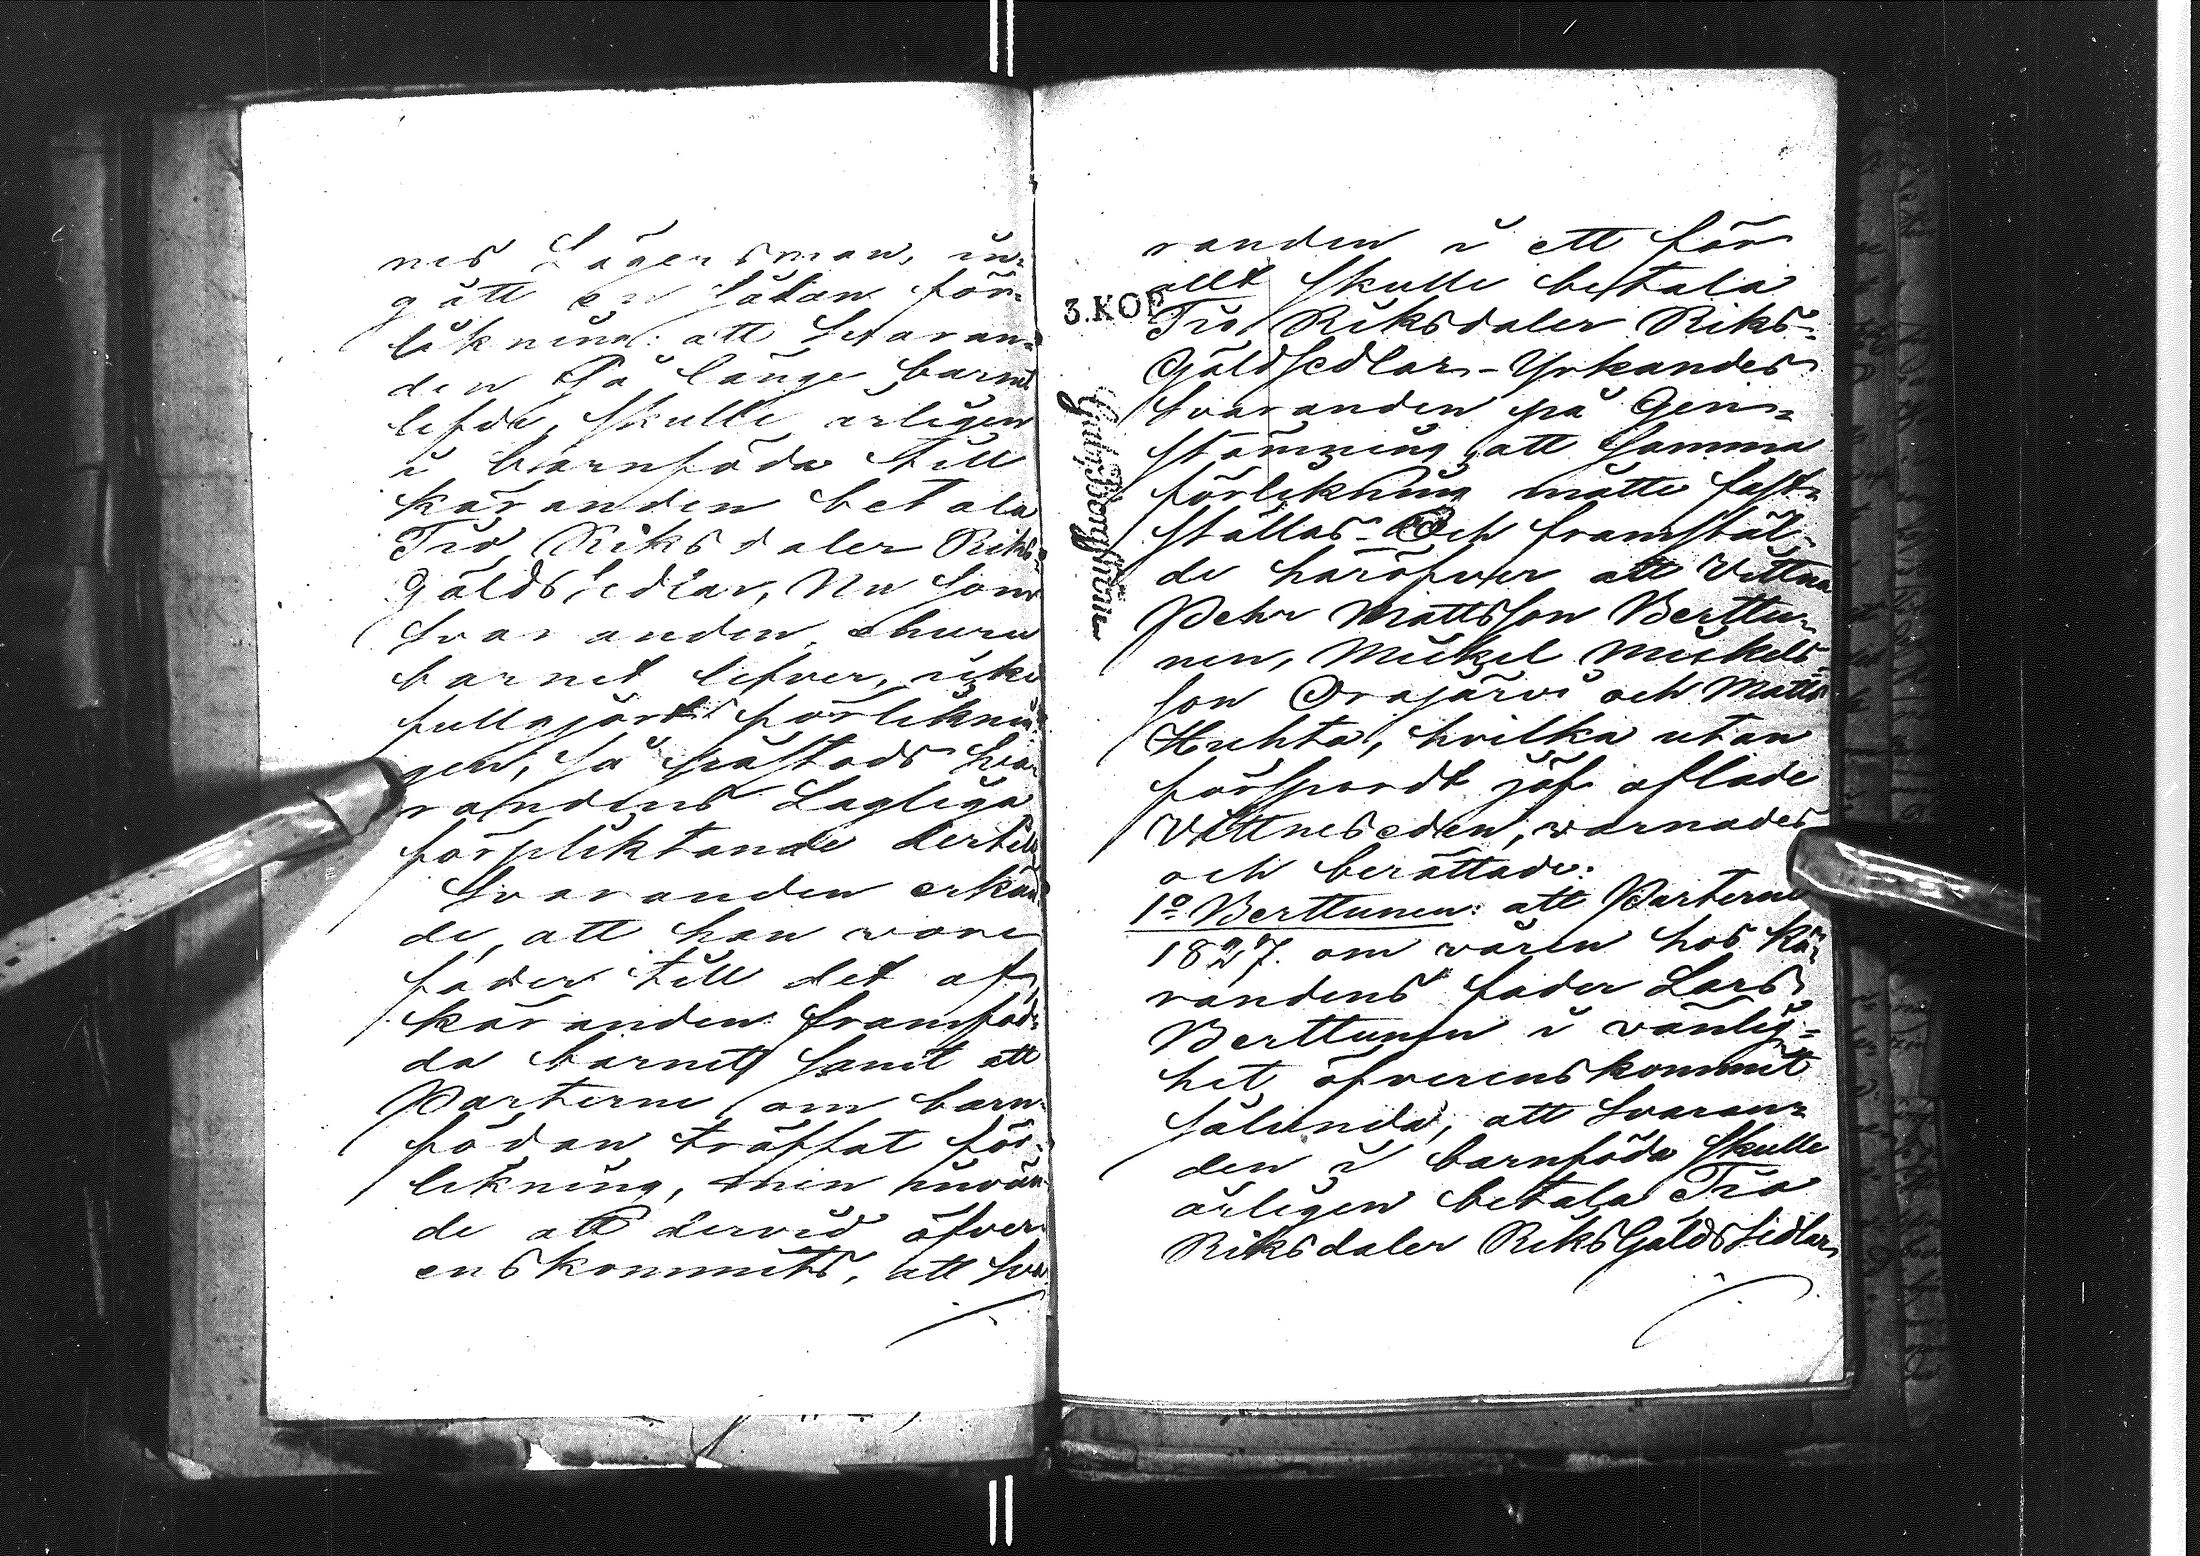 nes Lägersman, in-
gått en sådan för-
likning: att Svaran-
den så länge barnet
lefde, skulle årligen
i barnföda till
käranden betala
Tio Riksdaler Riks-
Gäldssedlar, Nu som
Svaranden, ehuru
barnet lefver, icke
fullgjort förliknin-
gen, så påstods Sva-
randens Lagliga
förpliktande dertill
Svaranden erkän-
de, att han vore
fader till det af
käranden framföd-
da barnet samt att
Parterne om barn-
födan träffat för-
likning, men invän-
de att dervid öfver-
enskommits, att Sva-
randen i ett för
allt skulle betala
3.KOP
Tio Riksdaler Riks-
Gäldssedlar - Yrkandes
Svaranden på Gen-
stämning att samma
förlikning måtte fast-
ställas - Och framstäl-
de häröfver att Vittna
Pehr Mattsson Berttu-
nen, Mickel Mickels-
son Orajärvi och Matts
Huhta, hvilka utan
försport jäf aflade
Vittneseden, warnades
och berättade:
1o Berttunen: att Parterne
1827. om våren hos Kä-
randens fader Lars
Berttunen i vänlig-
het öfverenskommit
sålunda, att Svaran-
den i barnföda skulle
årligen betala Tio
Riksdaler RiksGäldsSedlar,